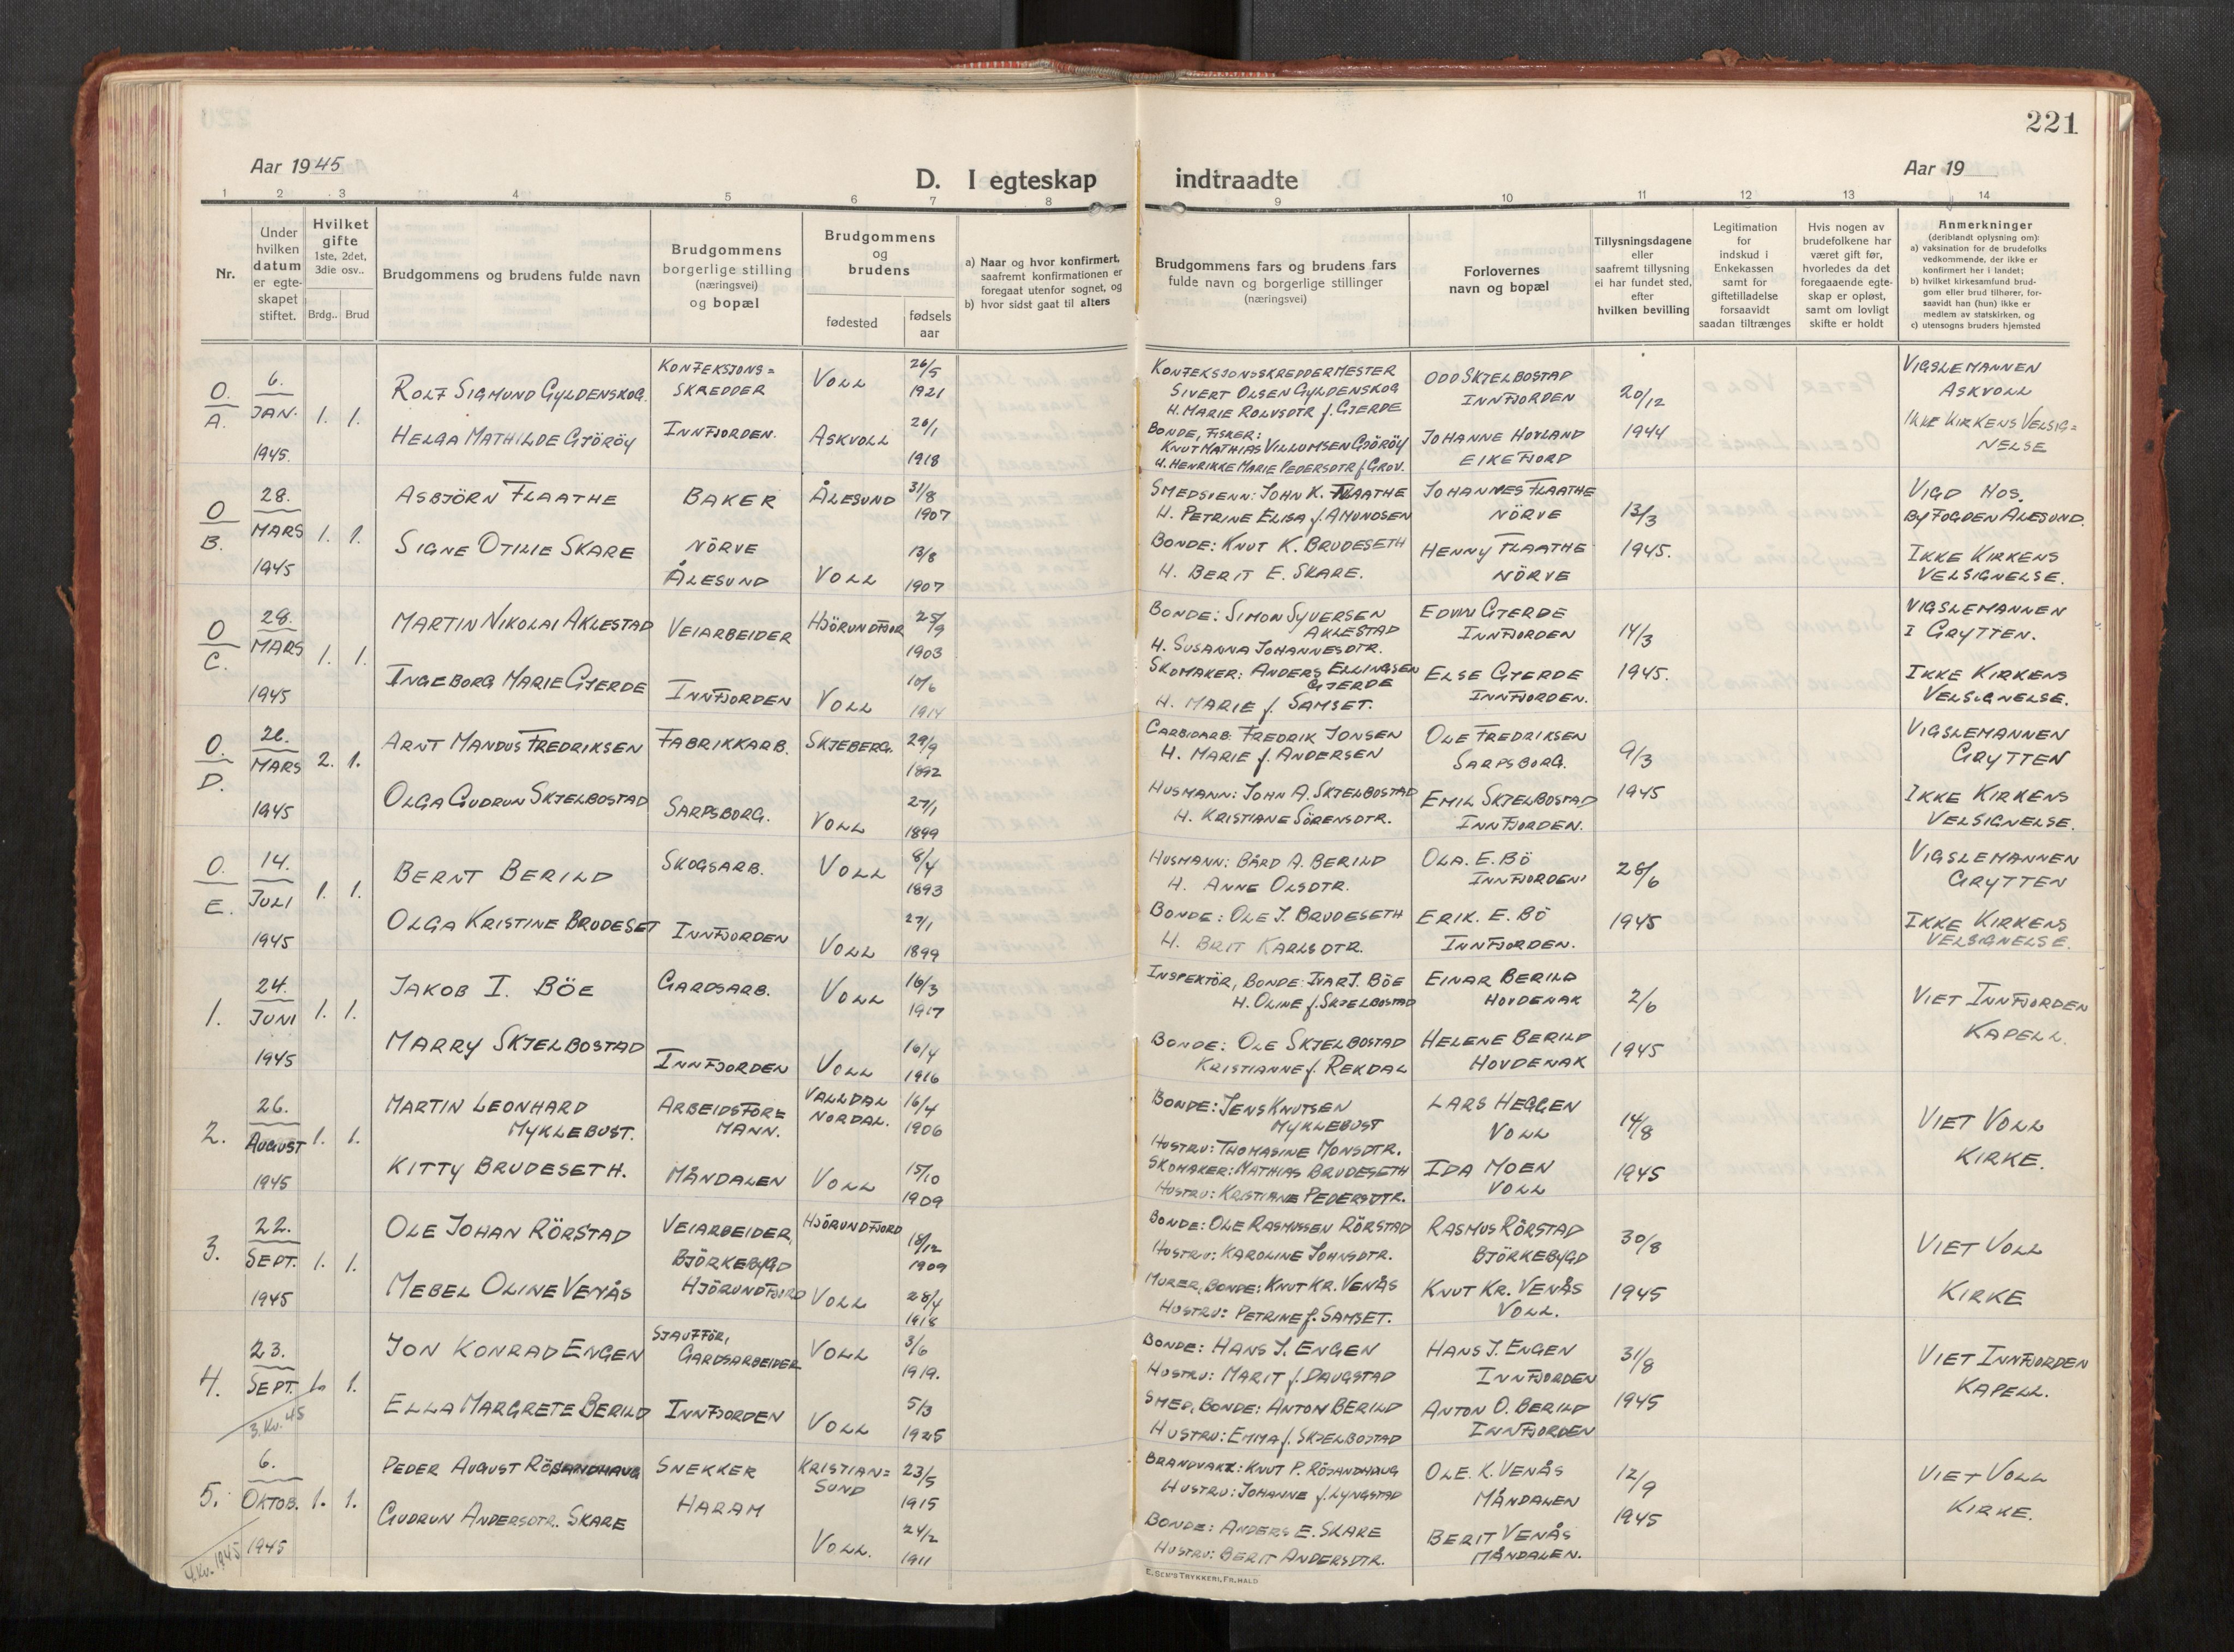 221
Aar 1945
D. I egteskap indtraadte
Aar 19
1 2 3 4 5 6 7 8 9 10 11 12 13 14
Nr.
Under
hvilken
datum
er egte-
skapet
stiftet.
Hvilket
gifte
1ste, 2det,
3die osv..
Brdg.. Brud
Brudgommens og brudens fulde navn
Brudgommens
borgerlige stilling
(næringsvei)
og bopæl
Brudgommens
og
brudens
fødested
fødsels
aar
a) Naar og hvor konfirmert,
saafremt konfirmationen er
foregaat utenfor sognet, og
b) hvor sidst gaat til alters
Brudgommens fars og brudens fars
fulde navn og borgerlige stillinger
(næringsvei)
Forlovernes
navn og bopæl
Tillysningsdagene
eller
saafremt tillysning
ei har fundet sted,
efter
hvilken bevilling
Legitimation
for
indskud i
Enkekassen
samt for
giftetilladelse
forsaavidt
saadan tiltrænges
Hvis nogen av
brudefolkene har
været gift før,
hvorledes da det
foregaaende egte-
skap er opløst,
samt om lovligt
skifte er holdt
Anmerkninger
(deriblandt oplysning om):
a) vaksination for de brudefolks
vedkommende, der ikke er
konfirmert her i landet;
b) hvilket kirkesamfund brud-
gom eller brud tilhører, for-
saavidt han (hun) ikke er
medlem av statskirken, og
c) utensogns bruders hjemsted
O.
A.
6.
JAN.
1945.
1. 1.
ROLF SIGMUND GYLDENSKOG.
HELGA MATHILDE GJÖRÖY
KONFEKSJONS=
SKREDDER
INNFJORDEN.
VOLL
ASKVOLL
26/5
1921
26/1
1918
KONFEKSJONSSKREDDERMESTER
SIVERT OLSEN GYLDENSKOG
H. MARIE ROLVSDTR f. GJERDE
BONDE, FISKER:
KNUT MATHIAS VILLUMSEN GJÖRÖY
H. HENRIKKE MARIE PEDERSDTR f. GROV.
ODD SKJELBOSTAD
INNFJORDEN
JOHANNE HOVLAND
EIKEFJORD
20/12
1944
VIGSLEMANNEN
ASKVOLL
IKKE KIRKENS VELSIG=
NELSE
O
B.
28.
MARS
1945
1. 1.
ASBJÖRN FLAATHE
SIGNE OTILIE SKARE
BAKER
NÖRVE
ÅLESUND
ÅLESUND
VOLL
31/8
1907
13/8
1907
SMEDSVENN: JOHN K. FLAATHE
H. PETRINE ELISA f. AMUNDSEN
BONDE: KNUT K. BRUDESETH
H. BERIT E. SKARE.
JOHANNES FLAATHE
NÖRVE
HENNY FLAATHE
NÖRVE
13/3
1945.
VIGD HOS.
BYFOGDEN ÅLESUND.
IKKE KIRKENS
VELSIGNELSE.
O
C.
28.
MARS
1945
1. 1.
MARTIN NIKOLAI AKLESTAD
INGEBORG MARIE GJERDE
VEIARBEIDER
INNFJORDEN
HJÖRUNDFJOR
VOLL
25/9
1903
10/6
1914
BONDE: SIMON SYVERSEN
AKLESTAD
H. SUSANNA JOHANNESDTR.
SKOMAKER: ANDERS ELLINGSEN
GJERDE
H. MARIE f. SAMSET.
EDVIN GJERDE
INNFJORDEN
ELSE GJERDE
INNFJORDEN.
14/3
1945.
VIGSLEMANNEN
I GRYTTEN.
IKKE KIRKENS
VELSIGNELSE.
O.
D.
26.
MARS
1945
2. 1.
ARNT MANDUS FREDRIKSEN
OLGA GUDRUN SKJELBOSTAD
FABRIKKARB.
SARPSBORG.
SKJEBERG.
VOLL
29/9
1892
27/1
1899
CARBIDARB. FREDRIK JONSEN
H. MARIE f. ANDERSEN
HUSMANN: JOHN A. SKJELBOSTAD
H. KRISTIANE SÖRENSDTR.
OLE FREDRIKSEN
SARPSBORG.
EMIL SKJELBOSTAD
INNFJORDEN.
9/3
1945
VIGSLEMANNEN
GRYTTEN
IKKE KIRKENS
VELSIGNELSE.
O.
E.
14.
JULI
1945
1. 1.
BERNT BERILD
OLGA KRISTINE BRUDESET
SKOGSARB.
INNFJORDEN
VOLL
VOLL
8/4
1893
27/1
1899
HUSMANN: BÅRD A. BERILD
H. ANNE OLSDTR.
BONDE: OLE J. BRUDESETH
H. BRIT KARLSDTR.
OLA. E. BÖ
INNFJORDEN
ERIK. E. BÖ
INNFJORDEN.
28/6
1945
VIGSLEMANNEN
GRYTTEN
IKKE KIRKENS
VELSIGNELSE.
1.
24.
JUNI
1945
1. 1.
JAKOB I. BÖE
MARRY SKJELBOSTAD
GARDSARB.
INNFJORDEN
VOLL
VOLL
16/3
1917
16/4
1916
INSPEKTÖR, BONDE: IVAR J. BÖE
H. OLINE f. SKJELBOSTAD
BONDE: OLE SKJELBOSTAD
KRISTIANNE f. REKDAL
EINAR BERILD
HOVDENAK
HELENE BERILD
HOVDENAK
2/6
1945
VIET INNFJORDEN
KAPELL.
2.
26.
AUGUST
1945
1. 1.
MARTIN LEONHARD
MYKLEBUST.
KITTY BRUDESETH.
ARBEIDSFOR=
MANN.
MÅNDALEN
VALLDAL
NORDAL.
VOLL
16/4
1906
15/10
1909
BONDE: JENS KNUTSEN
MYKLEBUST
HUSTRU: THOMASINE MONSDTR.
SKOMAKER: MATHIAS BRUDESETH
HUSTRU: KRISTIANE PEDERSDTR.
LARS HEGGEN
VOLL
IDA MOEN
VOLL
14/8
1945
VIET VOLL
KIRKE.
3.
22.
SEPT.
1945
1. 1.
OLE JOHAN RÖRSTAD
MEBEL OLINE VENÅS
VEIARBEIDER,
BJÖRKEBYGD
HJÖRUNDFJORD
HJÖRUNDFJORD
VOLL
18/12
1909
28/4
1918
BONDE: OLE RASMUSSEN RÖRSTAD
HUSTRU: KAROLINE JOHNSDTR.
MURER, BONDE: KNUT KR. VENÅS
HUSTRU: PETRINE f. SAMSET.
RASMUS RÖRSTAD
BJÖRKEBYGD
KNUT KR. VENÅS
VOLL.
30/8
1945
VIET VOLL
KIRKE
4.
23.
SEPT.
3. Kv. 45
1. 1.
JON KONRAD ENGEN
ELLA MARGRETE BERILD
SJAUFFÖR,
GARDSARBEIDER
INNFJORDEN
VOLL
VOLL
3/6
1919.
5/3
1925
BONDE: HANS J. ENGEN
HUSTRU: MARIT f. DAUGSTAD
SMED, BONDE: ANTON BERILD
HUSTRU: EMMA f. SKJELBOSTAD
HANS J. ENGEN
INNFJORDEN
ANTON O. BERILD
INNFJORDEN
31/8
1945
VIET INNFJORDEN
KAPELL.
5.
6.
OKTOB.
1945
4. Kv. 1945
1. 1.
PEDER AUGUST RÖSANDHAUG
GUDRUN ANDERSDTR. SKARE
SNEKKER
HARAM
KRISTIAN=
SUND
VOLL.
23/5
1915
24/2
1911
BRANDVAKT: KNUT P. RÖSANDHAUG
HUSTRU: JOHANNE f. LYNGSTAD
BONDE: ANDERS E. SKARE
HUSTRU: BERIT ANDERSDTR.
OLE. K. VENÅS
MÅNDALEN
BERIT VENÅS
MÅNDALEN.
12/9
1945
VIET VOLL
KIRKE.
E. SEM'S TRYKKERI, FR.HALD